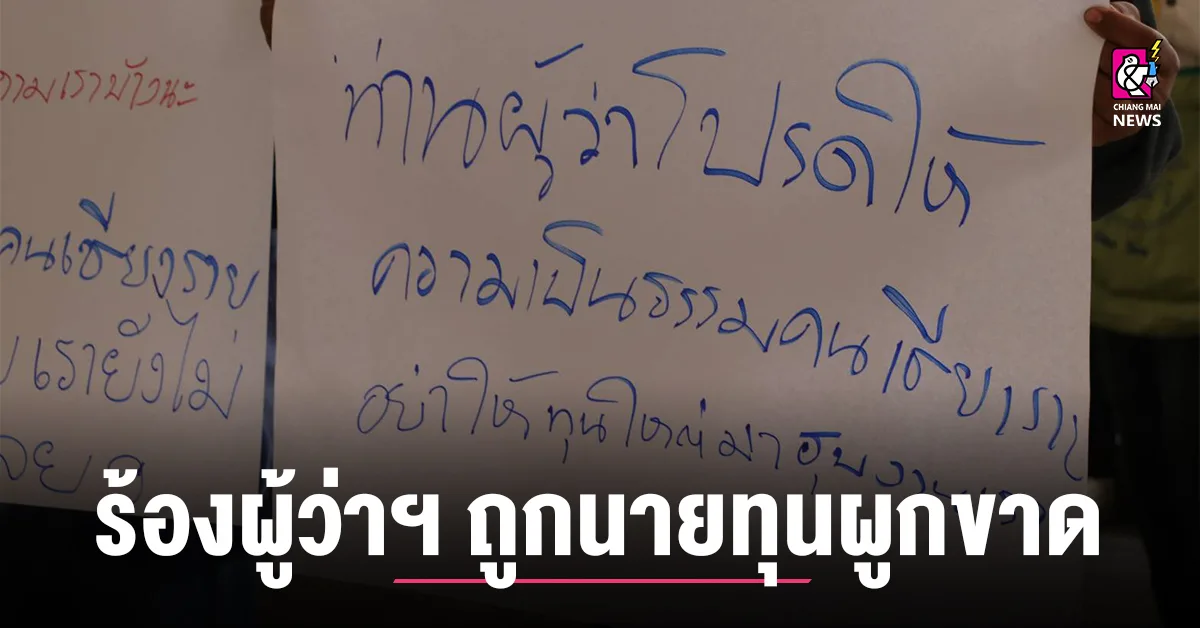 ถามเราบ้างนะ
คนเชียงราย
เรายังไม่
ท่านผู้ว่าโปรดให้
ความเป็นธรรมคนเชียงราย
อย่าให้ทุนใหญ่มาฮุบงาน
CHIANG MAI
NEWS
ร้องผู้ว่าฯ ถูกนายทุนผูกขาด